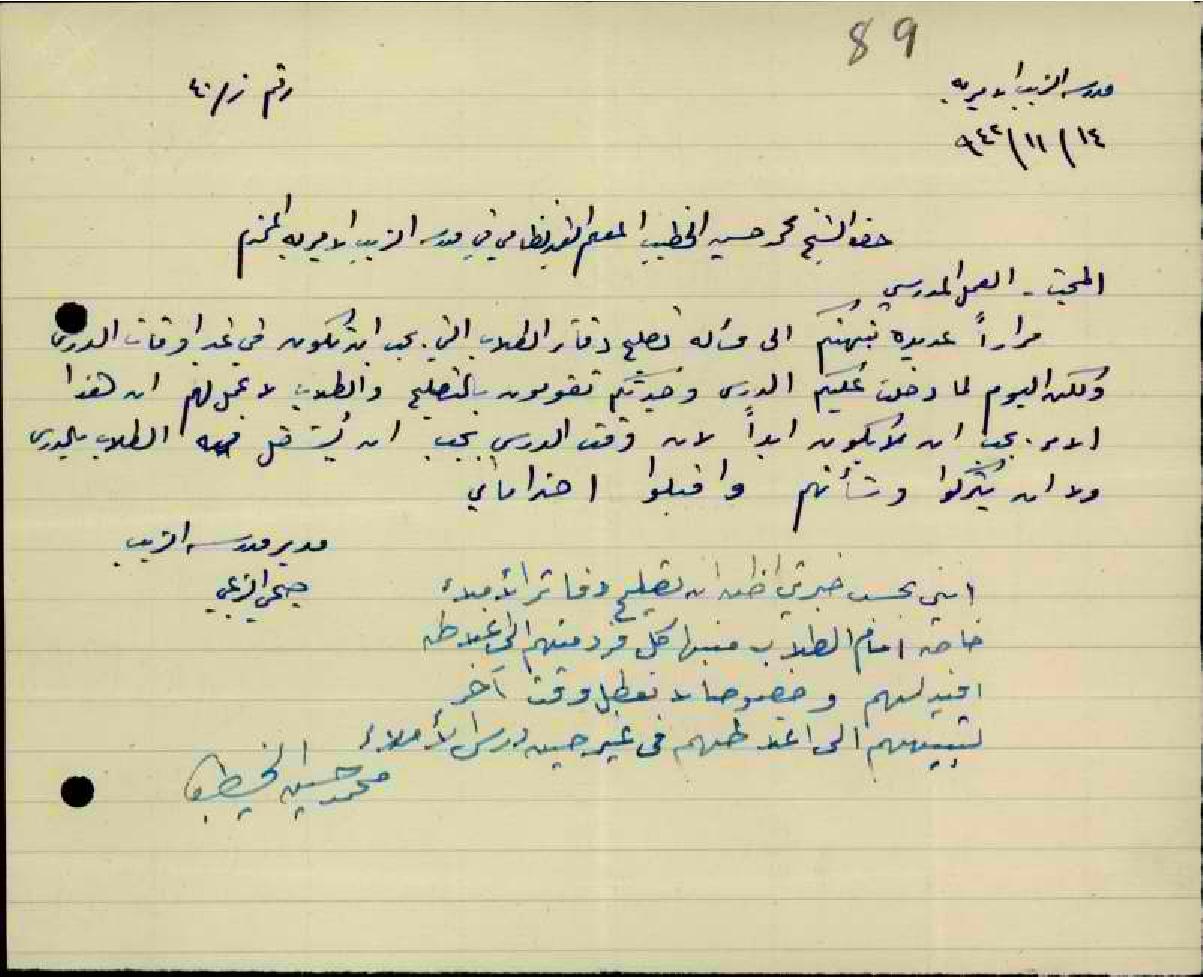 89
مدرسة الزيب الاميرية
رقم ز/٤٠
١٤/١١/٩٤٢
حضرة الشيخ محمد حسين الخطيب المعلم الغير نظامي في مدرسة الزيب الاميرية المحترم
المبحث - العمل المدرسي
مراراً عديدة نبهتكم الى مسألة تصليح دفاتر الطلاب التي يجب ان تكون في غير اوقات الدرس
ولكن اليوم لما دخلت عليكم الدرس وجدتكم تقومون بالتصليح والطلاب لا عمل لهم ان هذا
الامر يجب ان لا يكون ابداً لان وقت الدرس يجب ان يشتغل فيه الطلاب بالدرس
ولا ان يتركوا وشأنهم واقبلوا احتراماتي
مدير مدرسة الزيب
صبحي الزعبي
انني بحسب خبرتي اظن ان تصليح دفاتر الأملاء
خاصة امام الطلاب منبها كل فرد منهم الى اغلاطه
افيد لهم وخصوصا لا نعطل وقت آخر
لتنبيههم الى اغلاطهم في غير حين درس الأملاء
محمد حسين الخطيب